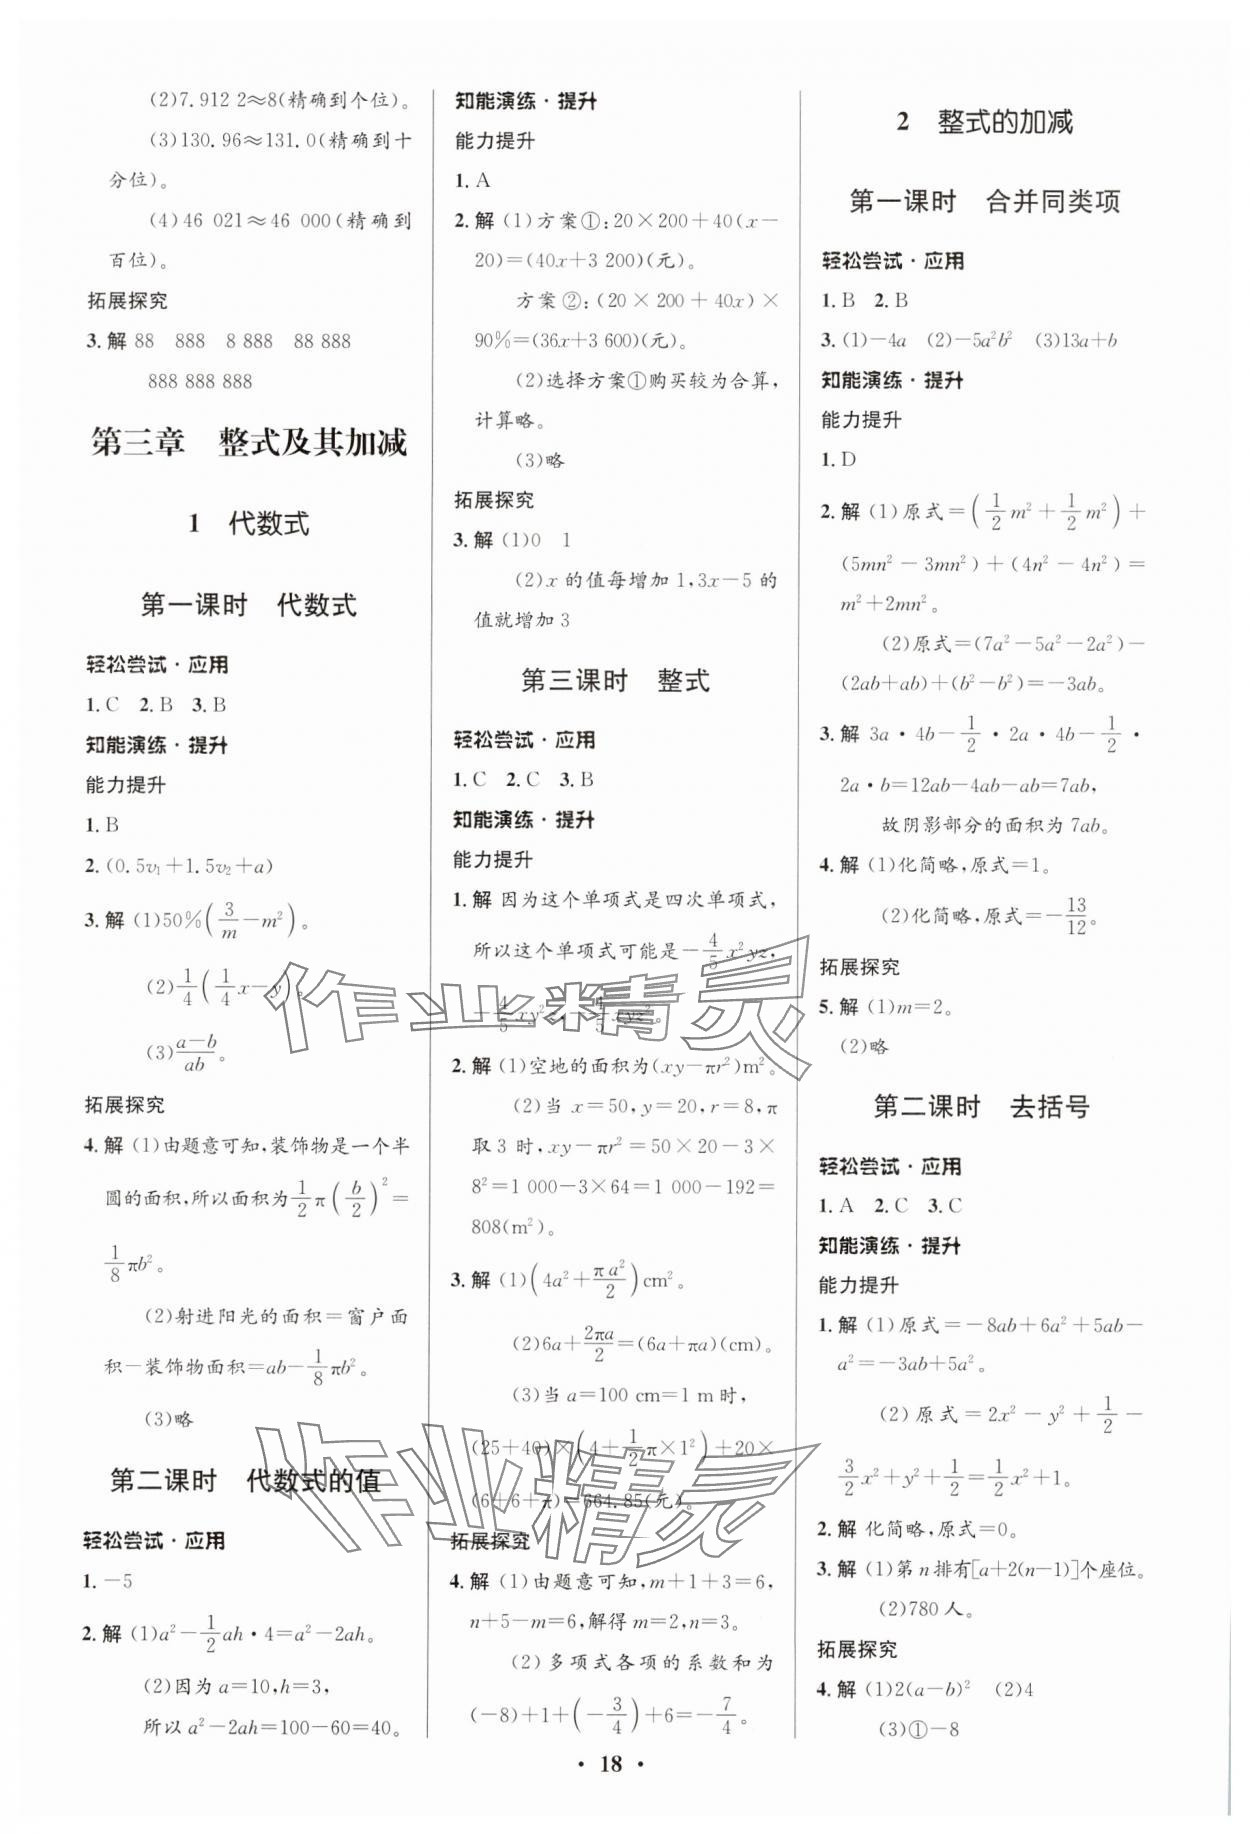 (2)7.912 2≈8(精确到个位)。
(3)130.96≈131.0(精确到十
分位)。
(4)46 021≈46 000(精确到
百位)。
拓展探究
3.解 88 888 8 888 88 888
888 888 888
第三章 整式及其加减
1 代数式
第一课时 代数式
轻松尝试·应用
1.C 2.B 3.B
知能演练·提升
能力提升
1.B
2.(0.5v₁+1.5v₂+a)
3.解 (1)50%(3/m-m²)。
(2)1/4(1/4x-y)。
(3)(a-b)/ab。
拓展探究
4.解 (1)由题意可知,装饰物是一个半
圆的面积,所以面积为1/2π(b/2)²=
1/8πb²。
(2)射进阳光的面积=窗户面
积-装饰物面积=ab-1/8πb²。
(3)略
第二课时 代数式的值
轻松尝试·应用
1.-5
2.解 (1)a²-1/2ah·4=a²-2ah。
(2)因为 a=10,h=3,
所以 a²-2ah=100-60=40。
知能演练·提升
能力提升
1.A
2.解 (1)方案①:20×200+40(x-
20)=(40x+3 200)(元)。
方案②:(20×200+40x)×
90%=(36x+3 600)(元)。
(2)选择方案①购买较为合算,
计算略。
(3)略
拓展探究
3.解 (1)0 1
(2)x 的值每增加 1,3x-5 的
值就增加 3
第三课时 整式
轻松尝试·应用
1.C 2.C 3.B
知能演练·提升
能力提升
1.解 因为这个单项式是四次单项式,
所以这个单项式可能是-4/5x²yz,
-4/5xy²z,-4/5xyz²。
2.解 (1)空地的面积为(xy-πr²)m²。
(2)当 x=50,y=20,r=8,π
取 3 时,xy-πr²=50×20-3×
8²=1 000-3×64=1 000-192=
808(m²)。
3.解 (1)(4a²+πa²/2)cm²。
(2)6a+2πa/2=(6a+πa)(cm)。
(3)当 a=100 cm=1 m 时,
(25+40)×(4+1/2π×1²)+20×
(6+6+π)=664.85(元)。
拓展探究
4.解 (1)由题意可知,m+1+3=6,
n+5-m=6,解得 m=2,n=3。
(2)多项式各项的系数和为
(-8)+1+(-3/4)+6=-7/4。
2 整式的加减
第一课时 合并同类项
轻松尝试·应用
1.B 2.B
3.(1)-4a (2)-5a²b² (3)13a+b
知能演练·提升
能力提升
1.D
2.解 (1)原式=(1/2m²+1/2m²)+
(5mn²-3mn²)+(4n²-4n²)=
m²+2mn²。
(2)原式=(7a²-5a²-2a²)-
(2ab+ab)+(b²-b²)=-3ab。
3.解 3a·4b-1/2·2a·4b-1/2·
2a·b=12ab-4ab-ab=7ab,
故阴影部分的面积为 7ab。
4.解 (1)化简略,原式=1。
(2)化简略,原式=-13/12。
拓展探究
5.解 (1)m=2。
(2)略
第二课时 去括号
轻松尝试·应用
1.A 2.C 3.C
知能演练·提升
能力提升
1.解 (1)原式=-8ab+6a²+5ab-
a²=-3ab+5a²。
(2)原式=2x²-y²+1/2-
3/2x²+y²+1/2=1/2x²+1。
2.解 化简略,原式=0。
3.解 (1)第 n排有[a+2(n-1)]个座位。
(2)780 人。
拓展探究
4.解 (1)2(a-b)² (2)4
(3)①-8
·18·
作业精灵
作业精灵